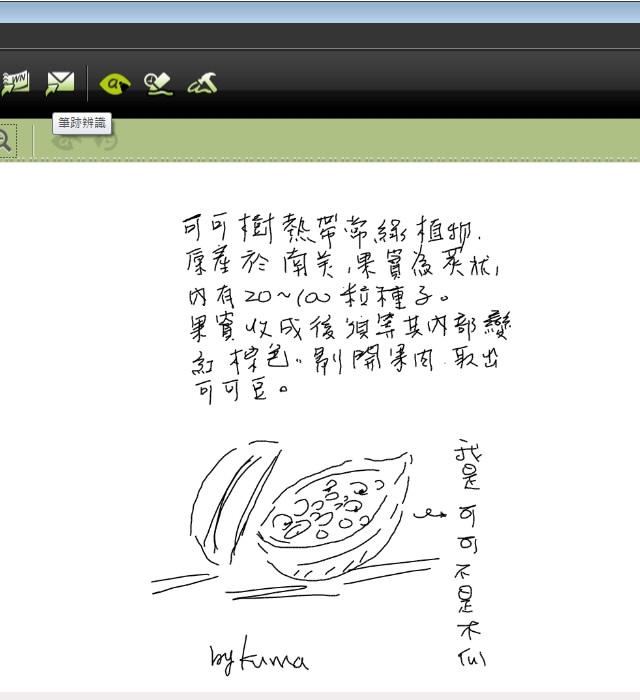 WN
筆跡辨識
可可樹熱帶常綠植物.
原產於南美,果實為莢狀,
內有20~100粒種子。
果實收成後須等其內部變
紅棕色。剝開果肉.取出
可可豆。
我是可可不是木
by kuma